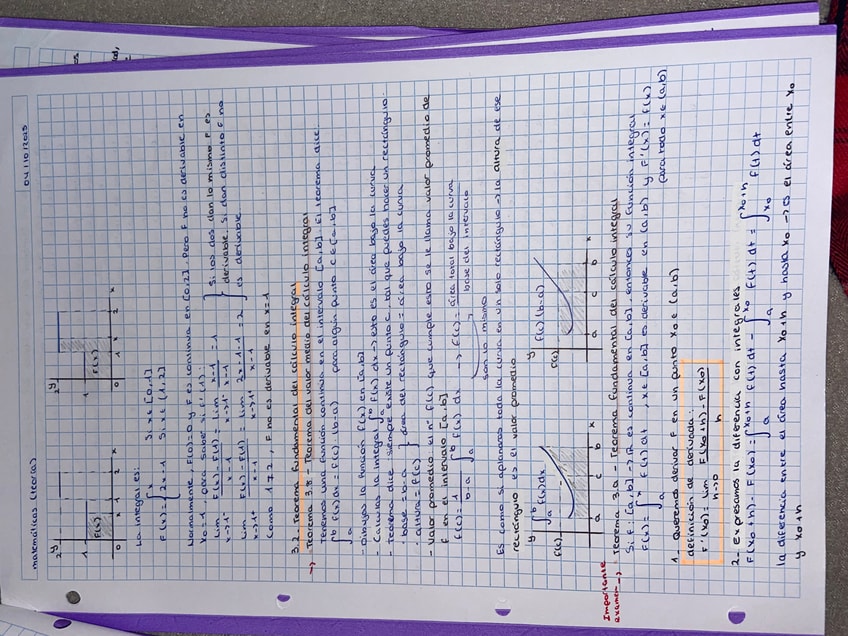 matemáticas (teoría) 04/10/2025
2 y
1
F(x)
0 1 2 x
2 y
1
F(x)
0 1 2 x
La integral es:
F(x) = { x Si x ∈ [0,1]
2x-1 Si x ∈ (1,2]
Normalmente F(0)=0 y F es continua en [0,2]. Pero F no es derivable en
x₀=1. Para saber si F'(1):
Lim x→1⁻ F(x)-F(1) / x-1 = Lim x→1⁻ x-1 / x-1 = 1
Lim x→1⁺ F(x)-F(1) / x-1 = Lim x→1⁺ 2x-1-1 / x-1 = 2
} Si los dos dan lo mismo F es
derivable. Si dan distinto F no
es derivable
Como 1≠2, F no es derivable en x=1
3.2. Teorema fundamental del cálculo integral
→ Teorema 3.8 - Teorema del valor medio del cálculo integral
Tenemos una función continua en el intervalo [a,b]. El teorema dice:
∫ₐᵇ f(x)dx = f(c)(b-a) para algún punto c ∈ [a,b]
- Dibujas la función f(x) en [a,b]
- Calculas la integral ∫ₐᵇ f(x)dx → esto es el área bajo la curva
- Teorema dice: siempre existe un punto c, tal que puedes hacer un rectángulo:
· base: b-a
· altura = f(c)
} área del rectángulo = área bajo la curva
- Valor promedio: el nº f(c) que cumple esto se le llama valor promedio de
f en el intervalo [a,b]
f(c) = 1 / b-a ∫ₐᵇ f(x) dx → f(c) = área total bajo la curva / base del intervalo
son lo mismo
Es como si aplanaras toda la curva en un solo rectángulo → la altura de ese
rectángulo es el valor promedio
y ∫ₐᵇ f(x)dx
f(c)
a c b x
y f(c)(b-a)
f(c)
a c b x
Importante
examen → Teorema 3.9 - Teorema fundamental del cálculo integral
Si f: [a,b] → R es continua en [a,b], entonces su función integral
F(x) = ∫ₐˣ f(t)dt, x ∈ [a,b] es derivable en (a,b) y F'(x) = f(x)
para todo x ∈ (a,b)
1_ Queremos derivar F en un punto x₀ ∈ (a,b)
definición de derivada:
F'(x₀) = lim h→0 F(x₀+h)-F(x₀) / h
2_ Expresamos la diferencia con integrales
F(x₀+h) - F(x₀) = ∫ₐˣ⁰⁺ʰ f(t)dt - ∫ₐˣ⁰ f(t)dt = ∫ₓ₀ˣ⁰⁺ʰ f(t)dt
la diferencia entre el área hasta x₀+h y hasta x₀ → es el área entre x₀
y x₀+h